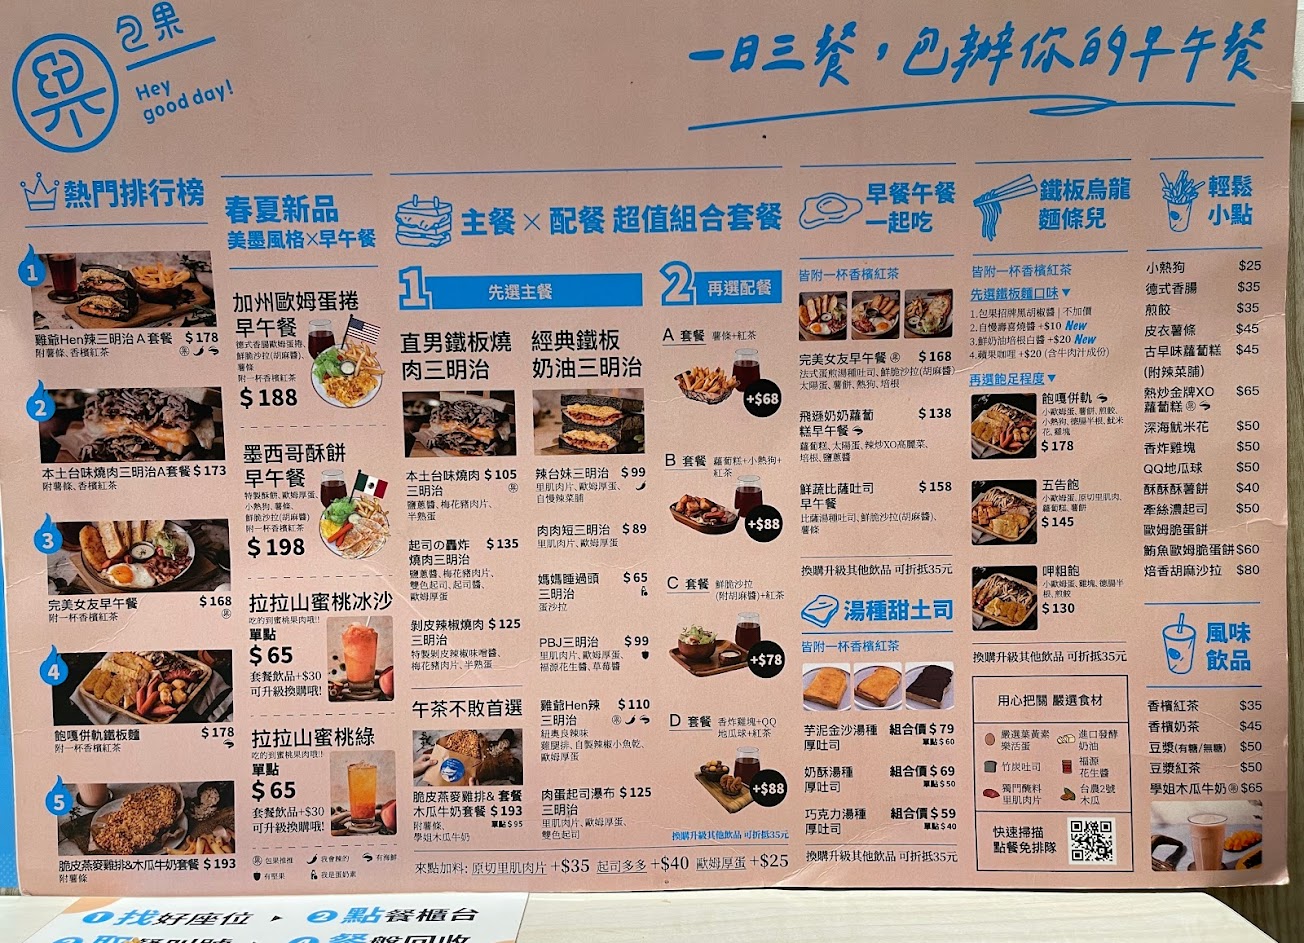 包果
Hey
good day!
一日三餐，包辦你的早午餐
熱門排行榜
1
雞爺Hen辣三明治 A 套餐 $178
附薯條、香檳紅茶
2
本土台味燒肉三明治A套餐 $173
附薯條、香檳紅茶
3
完美女友早午餐 $168
附一杯香檳紅茶
4
飽嘎併軌鐵板麵 $178
附一杯香檳紅茶
5
脆皮燕麥雞排&木瓜牛奶套餐 $193
附薯條
春夏新品
美墨風格×早午餐
加州歐姆蛋捲
早午餐
德式香腸歐姆蛋捲、
鮮脆沙拉(胡麻醬)、
薯條
附一杯香檳紅茶
$188
墨西哥酥餅
早午餐
特製酥餅、歐姆厚蛋、
小熱狗、薯條、
鮮脆沙拉(胡麻醬)
附一杯香檳紅茶
$198
拉拉山蜜桃冰沙
吃的到蜜桃果肉哦!!
單點
$65
套餐飲品+$30
可升級換購哦!
拉拉山蜜桃綠
吃的到蜜桃果肉哦!!
單點
$65
套餐飲品+$30
可升級換購哦!
包果推推 我會辣的 有海鮮
有堅果 我是蛋奶素
主餐×配餐 超值組合套餐
1 先選主餐
直男鐵板燒
肉三明治
本土台味燒肉 $105
三明治
鹽蔥醬、梅花豬肉片、
半熟蛋
起司の轟炸 $135
燒肉三明治
鹽蔥醬、梅花豬肉片、
雙色起司、起司醬、
歐姆厚蛋
剝皮辣椒燒肉 $125
三明治
特製剝皮辣椒味噌醬、
梅花豬肉片、半熟蛋
午茶不敗首選
脆皮燕麥雞排& 套餐
木瓜牛奶套餐 $193
附薯條、 單點$95
學姐木瓜牛奶
經典鐵板
奶油三明治
辣台妹三明治 $99
里肌肉片、歐姆厚蛋、
自慢辣菜脯
肉肉短三明治 $89
里肌肉片、歐姆厚蛋
媽媽睡過頭 $65
三明治
蛋沙拉
PBJ三明治 $99
里肌肉片、歐姆厚蛋、
福源花生醬、草莓醬
雞爺Hen辣 $110
三明治
紐奧良辣味
雞腿排、自製辣椒小魚乾、
歐姆厚蛋
肉蛋起司瀑布 $125
三明治
里肌肉片、歐姆厚蛋、
雙色起司
來點加料: 原切里肌肉片 +$35 起司多多 +$40 歐姆厚蛋 +$25
2 再選配餐
A 套餐 薯條+紅茶
+$68
B 套餐 蘿蔔糕+小熱狗+
紅茶
+$88
C 套餐 鮮脆沙拉
(附胡麻醬)+紅茶
+$78
D 套餐 香炸雞塊+QQ
地瓜球+紅茶
+$88
換購升級其他飲品 可折抵35元
早餐午餐
一起吃
皆附一杯香檳紅茶
完美女友早午餐 $168
法式蛋煎湯種吐司、鮮脆沙拉(胡麻醬)
太陽蛋、薯餅、熱狗、培根
飛遜奶奶蘿蔔 $138
糕早午餐
蘿蔔糕、太陽蛋、辣炒XO高麗菜、
培根、鹽蔥醬
鮮蔬比薩吐司 $158
早午餐
比薩湯種吐司、鮮脆沙拉(胡麻醬)、
薯條
換購升級其他飲品 可折抵35元
湯種甜土司
皆附一杯香檳紅茶
芋泥金沙湯種 組合價$79
厚吐司 單點$60
奶酥湯種 組合價$69
厚吐司 單點$50
巧克力湯種 組合價$59
厚吐司 單點$40
換購升級其他飲品 可折抵35元
鐵板烏龍
麵條兒
皆附一杯香檳紅茶
先選鐵板麵口味▼
1.包果招牌黑胡椒醬｜不加價
2.自慢壽喜燒醬 +$10 New
3.鮮奶油培根白醬 +$20 New
4.蘋果咖哩 +$20 (含牛肉汁成份)
再選飽足程度▼
飽嘎併軌
小歐姆蛋、薯餅、煎餃、
小熱狗、德腸半根、魷米
花、雞塊
$178
五告飽
小歐姆蛋、原切里肌肉、
蘿蔔糕、薯餅
$145
呷粗飽
小歐姆蛋、雞塊、德腸半
根、煎餃
$130
換購升級其他飲品 可折抵35元
用心把關 嚴選食材
嚴選葉黃素
樂活蛋
進口發酵
奶油
竹炭吐司
福源
花生醬
獨門醃料
里肌肉片
台農2號
木瓜
快速掃描
點餐免排隊
輕鬆
小點
小熱狗 $25
德式香腸 $35
煎餃 $35
皮衣薯條 $45
古早味蘿蔔糕 $45
(附辣菜脯)
熱炒金牌XO $65
蘿蔔糕
深海魷米花 $50
香炸雞塊 $50
QQ地瓜球 $50
酥酥酥薯餅 $40
牽絲濃起司 $50
歐姆脆蛋餅
鮪魚歐姆脆蛋餅 $60
焙香胡麻沙拉 $80
風味
飲品
香檳紅茶 $35
香檳奶茶 $45
豆漿(有糖/無糖) $50
豆漿紅茶 $50
學姐木瓜牛奶 $65
1 找好座位 ▸ 2 點餐櫃台